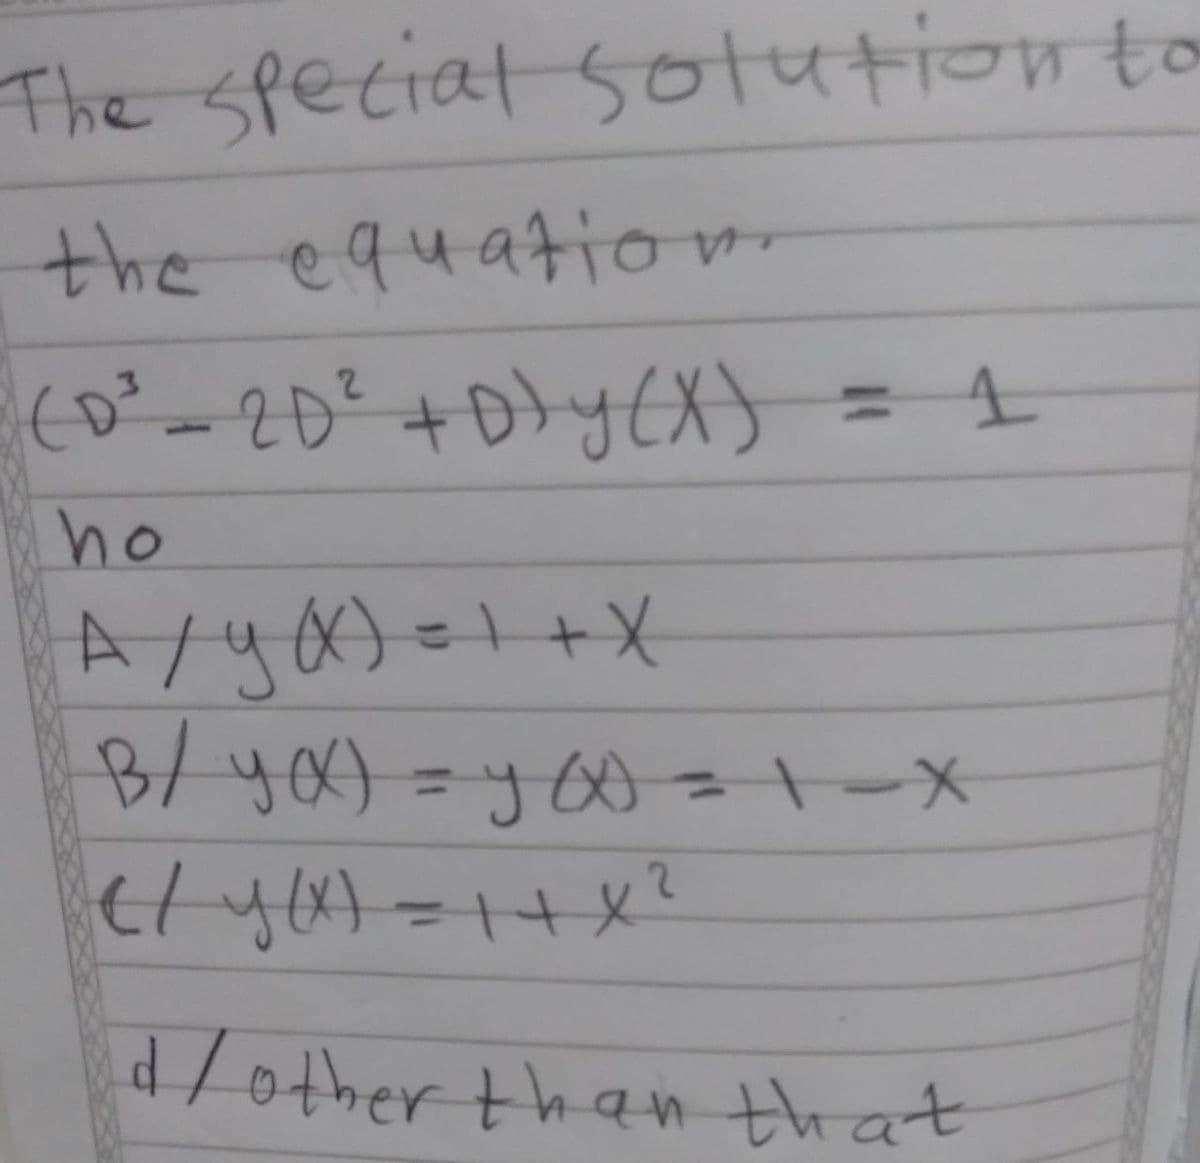 The special solution to
the equation.
(D³ - 2D² + D) y(X) = 1
ho
A / y(X) = 1 + X
B/ y(X) = y(X) = 1 - x
c/ y(X) = 1 + x²
d / other than that